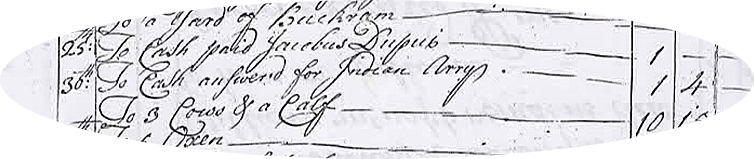 To a Yard of Buckram
25th: To Cash paid Jacobus Dupuis 1
30th: To Cash answered for Indian Arry 1 4
To 3 Cows & a Calf 10
Oxen